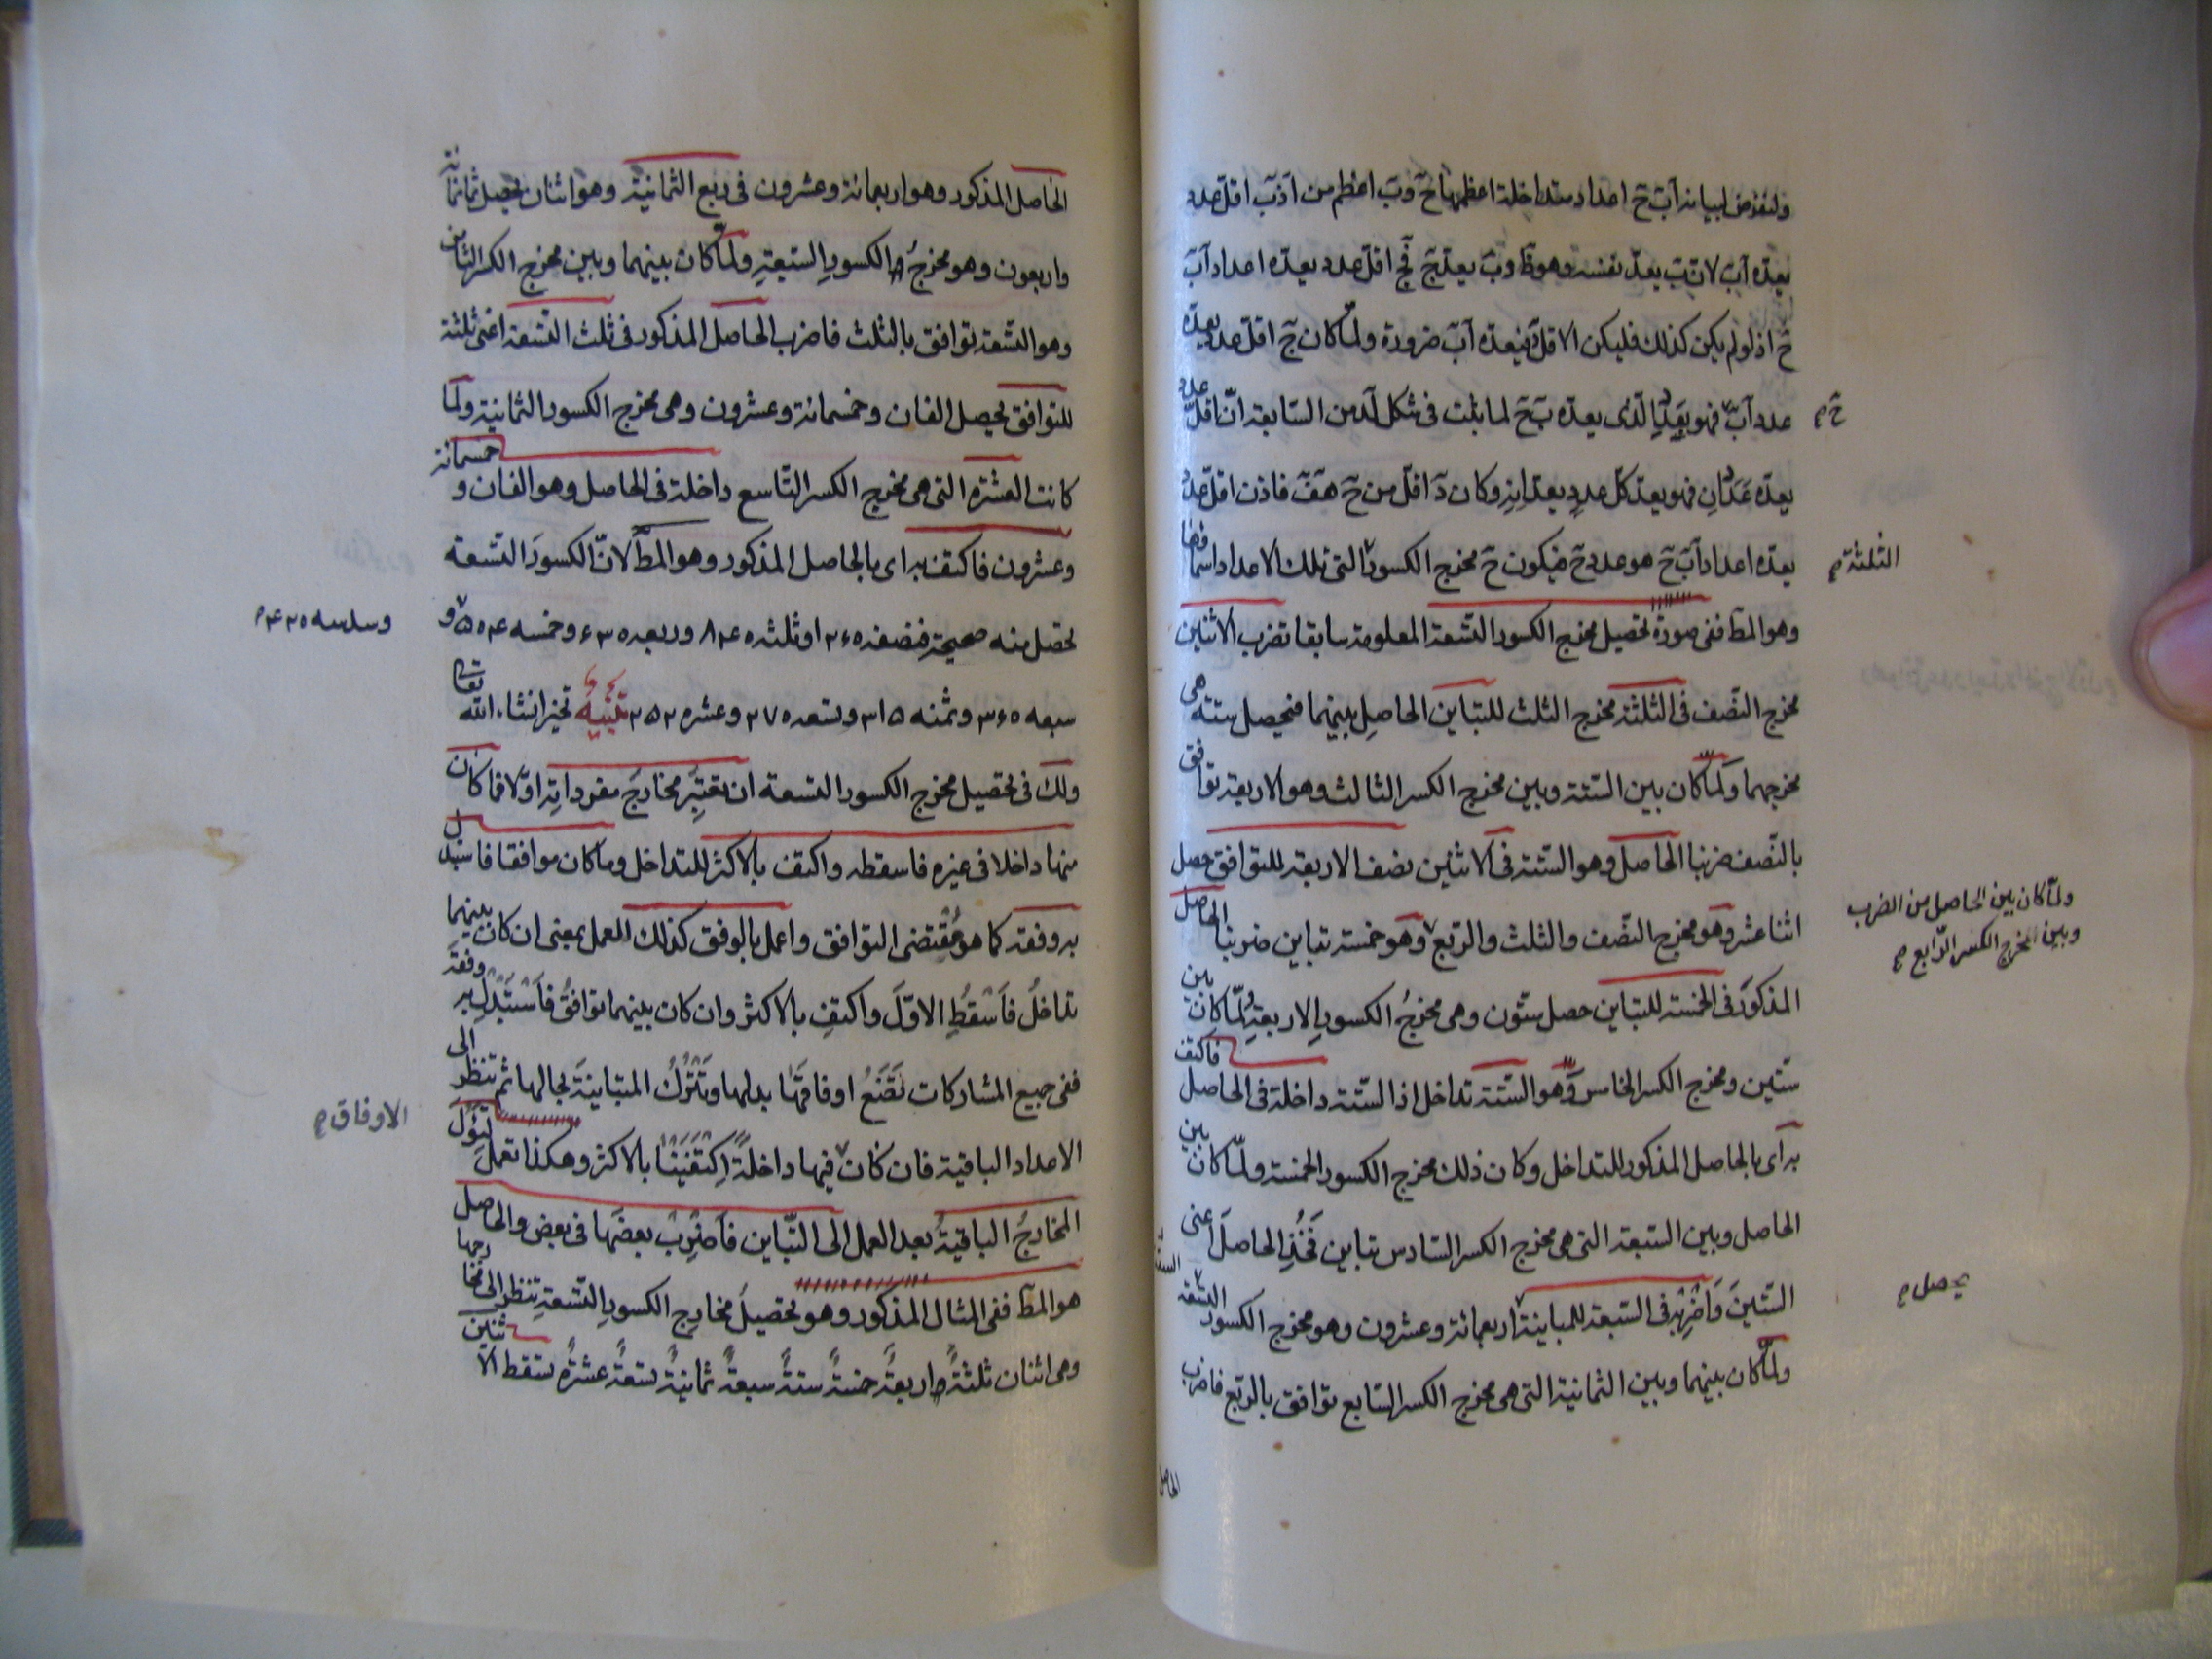 ولنفرض لبيانه اَبَ حَ اعداد متداخلة اعظمها حَ وبَ اعظم من اَ فبَ اقل عدد
يعدّه اَبَ لان بَ يعدّ نفسه وهو ظ وبَ يعدّ حَ فحَ اقل عدد يعدّه اعداد اَبَ
حَ اذ لو لم يكن كذلك فليكن الاقل فيعدّه اَبَ ضرورة ولما كان حَ اقل عدد يعدّه
عدد اَبَ فهو يعدّ الذى يعدّه بَ حَ لما يثبت فى شكل لَد من السابعة انّ اقل عدد
يعدّه عددان فهو يعدّ كل عدد يعدانه وكان دَ اقل من حَ هَفَ فاذن اقل عدد
يعدّه اعداد اَبَ حَ هو عدد حَ فيكون حَ مخرج الكسور التى تلك الاعداد اسما
الثلثة
وهو المط ففى صورة تحصيل مخرج الكسور التسعة المعلومة سابقا تضرب الاثنين
مخرج النصف فى الثلثة مخرج الثلث للتباين الحاصل بينهما فيحصل ستة هى
مخرجهما ولما كان بين الستة وبين مخرج الكسر الثالث وهو الاربعة توافق
بالنصف ضربنا الحاصل وهو الستة فى الاثنين نصف الاربعة للتوافق حصل
اثنا عشر وهو مخرج النصف والثلث والربع وهو خمسة تباين ضربنا الحاصل
ولما كان بين الحاصل من الضرب
وبين مخرج الكسر الرابع
المذكور فى الخمسة للتباين حصل ستون وهى مخرج الكسور الاربعة ولما كان بين
ستين ومخرج الكسر الخامس وهو الستة تداخل اذ الستة داخلة فى الحاصل فاكتف
به اى بالحاصل المذكور للتداخل وكان ذلك مخرج الكسور الخمسة ولما كان بين
الحاصل وبين السبعة التى هى مخرج الكسر السادس تباين فخذ الحاصل اعنى
الستين واضربه فى السبعة للمباينة اربعمائة وعشرون وهو مخرج الكسور الستة
يحصل
ولما كان بينهما وبين الثمانية التى هى مخرج الكسر السابع توافق بالربع فاضرب
الحاصل
الحاصل المذكور وهو اربعمائة وعشرون فى ربع الثمانية وهو اثنان يحصل ثمانمائة
واربعون وهو مخرج الكسور السبعة ولما كان بينهما وبين مخرج الكسر الثامن
وهو التسعة توافق بالثلث فاضرب الحاصل المذكور فى ثلث التسعة اعنى ثلثة
للتوافق يحصل الفان وخمسمائة وعشرون وهى مخرج الكسور الثمانية ولما
كانت العشرة التى هى مخرج الكسر التاسع داخلة فى الحاصل وهو الفان و خمسمائة
وعشرون فاكتف به اى بالحاصل المذكور وهو المط لانّ الكسور التسعة
تحصل منه صحيحة فنصفه ١٢٦٠ وثلثه ٨٤٠ وربعه ٦٣٠ وخمسه ٥٠٤ و
وسدسه ٤٢٠
سبعه ٣٦٠ وثمنه ٣١٥ وتسعه ٢٨٠ وعشره ٢٥٢ تتنبيه تخير انشاء الله تعالى
ولك فى تحصيل مخرج الكسور التسعة ان تعتبر مخارج مفرداته اولا فما كان
منها داخلا فى غيره فاسقطه واكتف بالاكثر للتداخل وما كان موافقا فاستبدل
به وفقه كما هو مقتضى التوافق واعمل بالوفق كذلك العمل بمعنى ان كان بينهما
تداخل فاسقط الاوّل واكتف بالاكثر وان كان بينهما توافق فاستبدل به وفقه
ففى جميع المشاركات تضع اوفاقها بدلها وتترك المتباينة بحالها ثم تنظر الى
الاوفاق
الاعداد الباقية فان كان فيها داخلة اكتفينا بالاكثر وهكذا تعمل لتؤل
المخارج الباقية بعد العمل الى التباين فاضرب بعضها فى بعض والحاصل
هو المط ففى المثال المذكور وهو تحصيل مخارج الكسور التسعة تنظر الى مخارجها
وهى اثنان ثلثة اربعة خمسة ستة سبعة ثمانية تسعة عشرة تسقط الاثنين